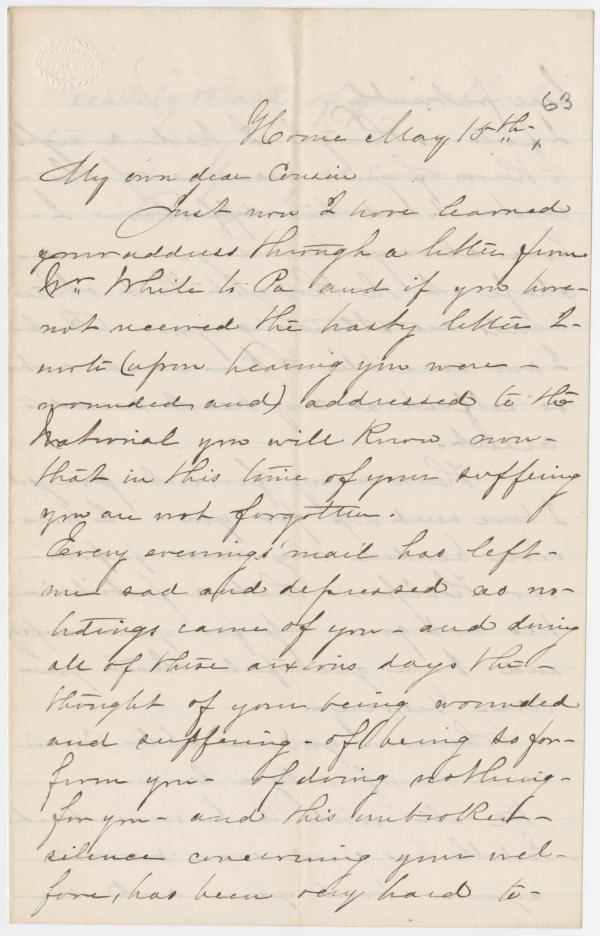 63
Home May 15th,
My own dear Cousin
Just now I have learned
your address through a letter from
Mr. White to Pa and if you have
not received the hasty letter I
wrote (upon hearing you were -
wounded and) addressed to the
National you will know now -
that in this time of your suffering
you are not forgotten.
Every evenings mail has left -
me sad and depressed as no -
tidings came of you - and during
all of these anxious days the -
thought of your being wounded
and suffering - of being so far -
from you - of doing nothing -
for you - and this unbroken -
silence concerning your wel -
fare, has been very hard to -